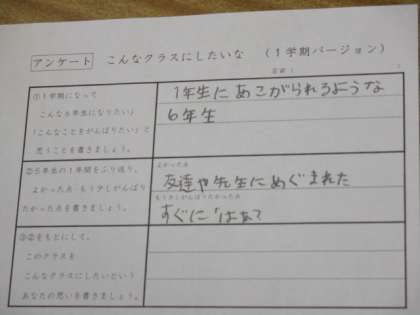 アンケート こんなクラスにしたいな (1学期バージョン)
名前(
①1学期になって
こんな6年生になりたい」
「こんなことをがんばりたい」と
思うことを書きましょう。
1年生にあこがられるような
6年生
②5年生の1年間をふり返り、
よかった点・もう少しがんばり
たかった点を書きましょう。
よかった点
友達や先生にめぐまれた
もう少しがんばりたかった点
すぐに「はあて
③②をもとにして、
このクラスを
こんなクラスにしたいという
あなたの思いを書きましょう。